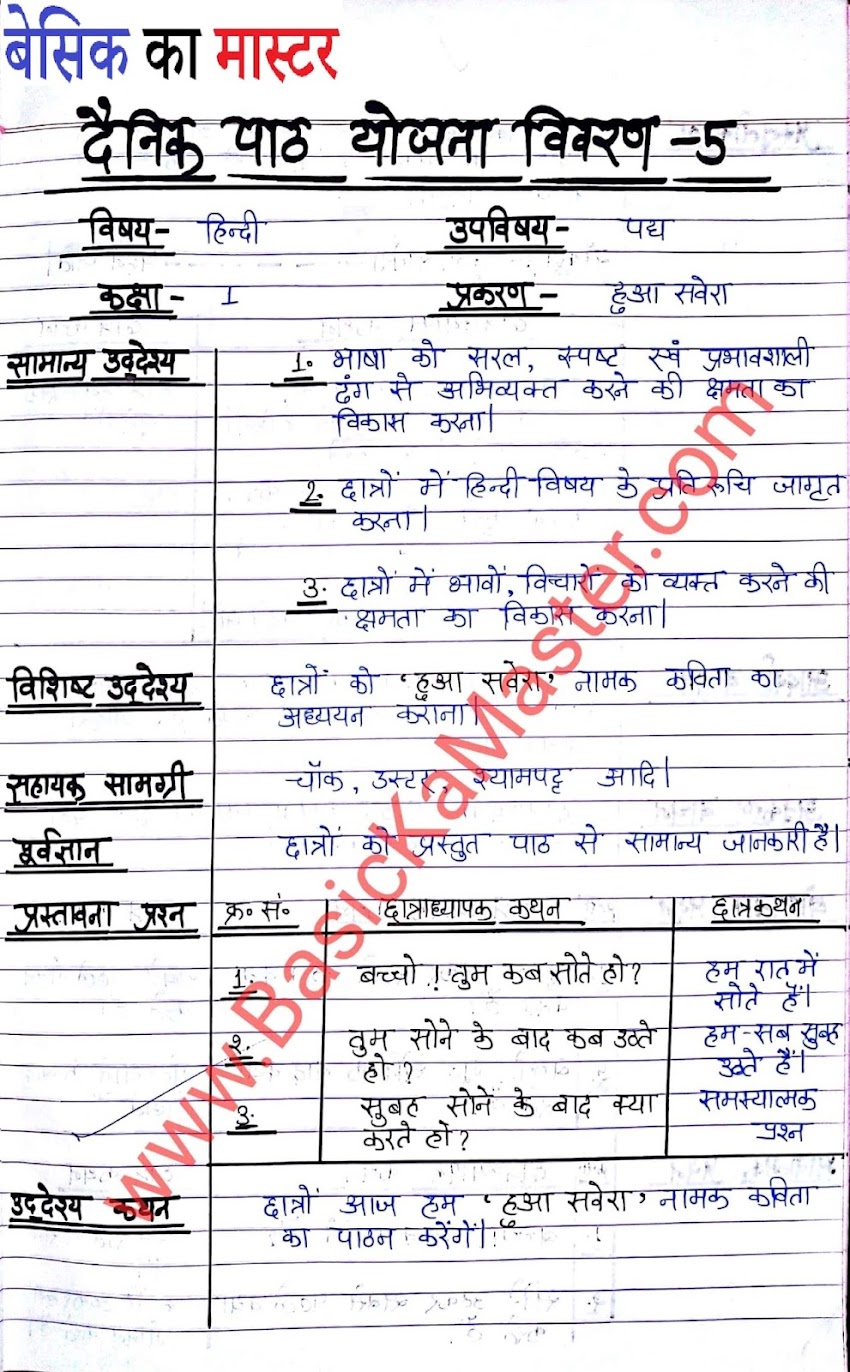 बेसिक का मास्टर
दैनिक पाठ योजना विवरण -5
विषय- हिन्दी उपविषय- पद्य
कक्षा - 1 प्रकरण - हुआ सवेरा
सामान्य उद्देश्य 1. भाषा को सरल, स्पष्ट एवं प्रभावशाली
ढंग से अभिव्यक्त करने की क्षमता का
विकास करना।
2. छात्रों में हिन्दी विषय के प्रति रूचि जागृत
करना।
3. छात्रों में भावों, विचारों को व्यक्त करने की
क्षमता का विकास करना।
विशिष्ट उद्देश्य छात्रों को 'हुआ सवेरा' नामक कविता का
अध्ययन कराना।
सहायक सामग्री चॉक, डस्टर, श्यामपट्ट आदि।
पूर्वज्ञान छात्रों को प्रस्तुत पाठ से सामान्य जानकारी है।
प्रस्तावना प्रश्न क्र. सं. छात्राध्यापक कथन छात्रकथन
1. बच्चो ! तुम कब सोते हो? हम रात में
सोते हैं।
2. तुम सोने के बाद कब उठते हम-सब सुबह
हो? उठते हैं।
3. सुबह सोने के बाद क्या समस्यात्मक
करते हो? प्रश्न
उद्देश्य कथन छात्रों आज हम 'हुआ सवेरा' नामक कविता
का पाठन करेंगें।
www.BasicKaMaster.com